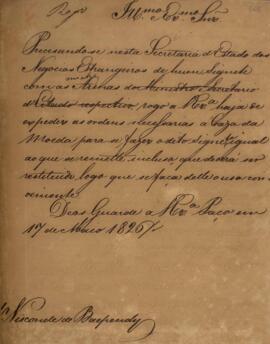 Illmo. Exmo. Snr.
Precisando-se nesta Secretaria d'Estado dos
Negocios Estrangeiros de hum Signete
com as Armas do Ministro Secretario
d'Estado respectivo, rogo a V. Exa. haja de
expedir as ordens necessarias a Caza da
Moeda para se fazer o dito Signete igual
ao que se remette incluso que deverá ser
restituido logo que se faça delle o uso con
veniente.
Deos Guarde a V. Exa. Paço em
17 de Maio 1826
Visconde de Baependy